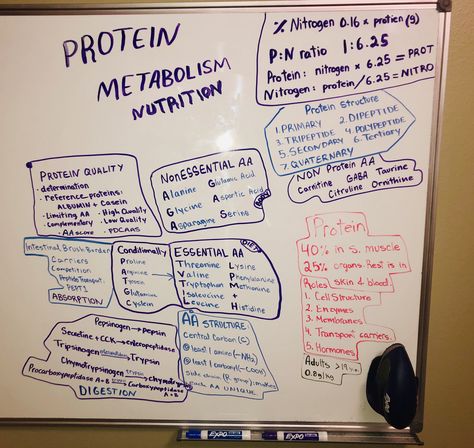 PROTEIN
METABOLISM
NUTRITION
% Nitrogen 0.16 x protien (g)
P:N ratio 1:6.25
Protein: nitrogen x 6.25 = PROT
Nitrogen: protein/6.25 = NITRO
Protein Structure
1. PRIMARY 2. DIPEPTIDE
3. TRIPEPTIDE 4. POLYPEPTIDE
5. SECONDARY 6. Tertiary
7. QUATERNARY
NON Protein AA
Carnitine GABA Taurine
Citruline Ornithine
PROTEIN QUALITY
• determination
• Reference proteins:
ALBUMIN + Casein
• Limiting AA • High Quality
• Complementary • Low Quality
• AA score • PDCAAS
NonESSENTIAL AA
Alanine Glutamic Acid
Glycine Aspartic Acid
Asparagine Serine
Intestinal Brush Border
Carriers
Competition
Peptide Transport:
PEPT1
ABSORPTION
Conditionally
Proline
Arginine
Tyrosin
Glutamine
Cystein
ESSENTIAL AA
DIET
Threonine Lysine
Valine Phenylalanine
Tryptophan Methionine
Isoleucine +
Leucine Histidine
Protein
40% in S. muscle
25% organs. Rest is in
Roles skin & blood
1. Cell Structure
2. Enzymes
3. Membranes
4. Transport carriers.
5. Hormones
Adults >19
0.8g/kg
Pepsinogen → Pepsin
Secretine + CCK → enteropeptidase
Tripsinogen → Trypsin
Chymotrypsinogen → Chymotrypsin
Procarboxypeptidase A+B → Carboxypeptidase
A+B
DIGESTION
AA STRUCTURE
Central Carbon (C)
@least 1 amine (-NH2)
@least 1 carboxyl (-COOH)
Side chain (R group) makes
each AA UNIQUE
EXPO EXPO